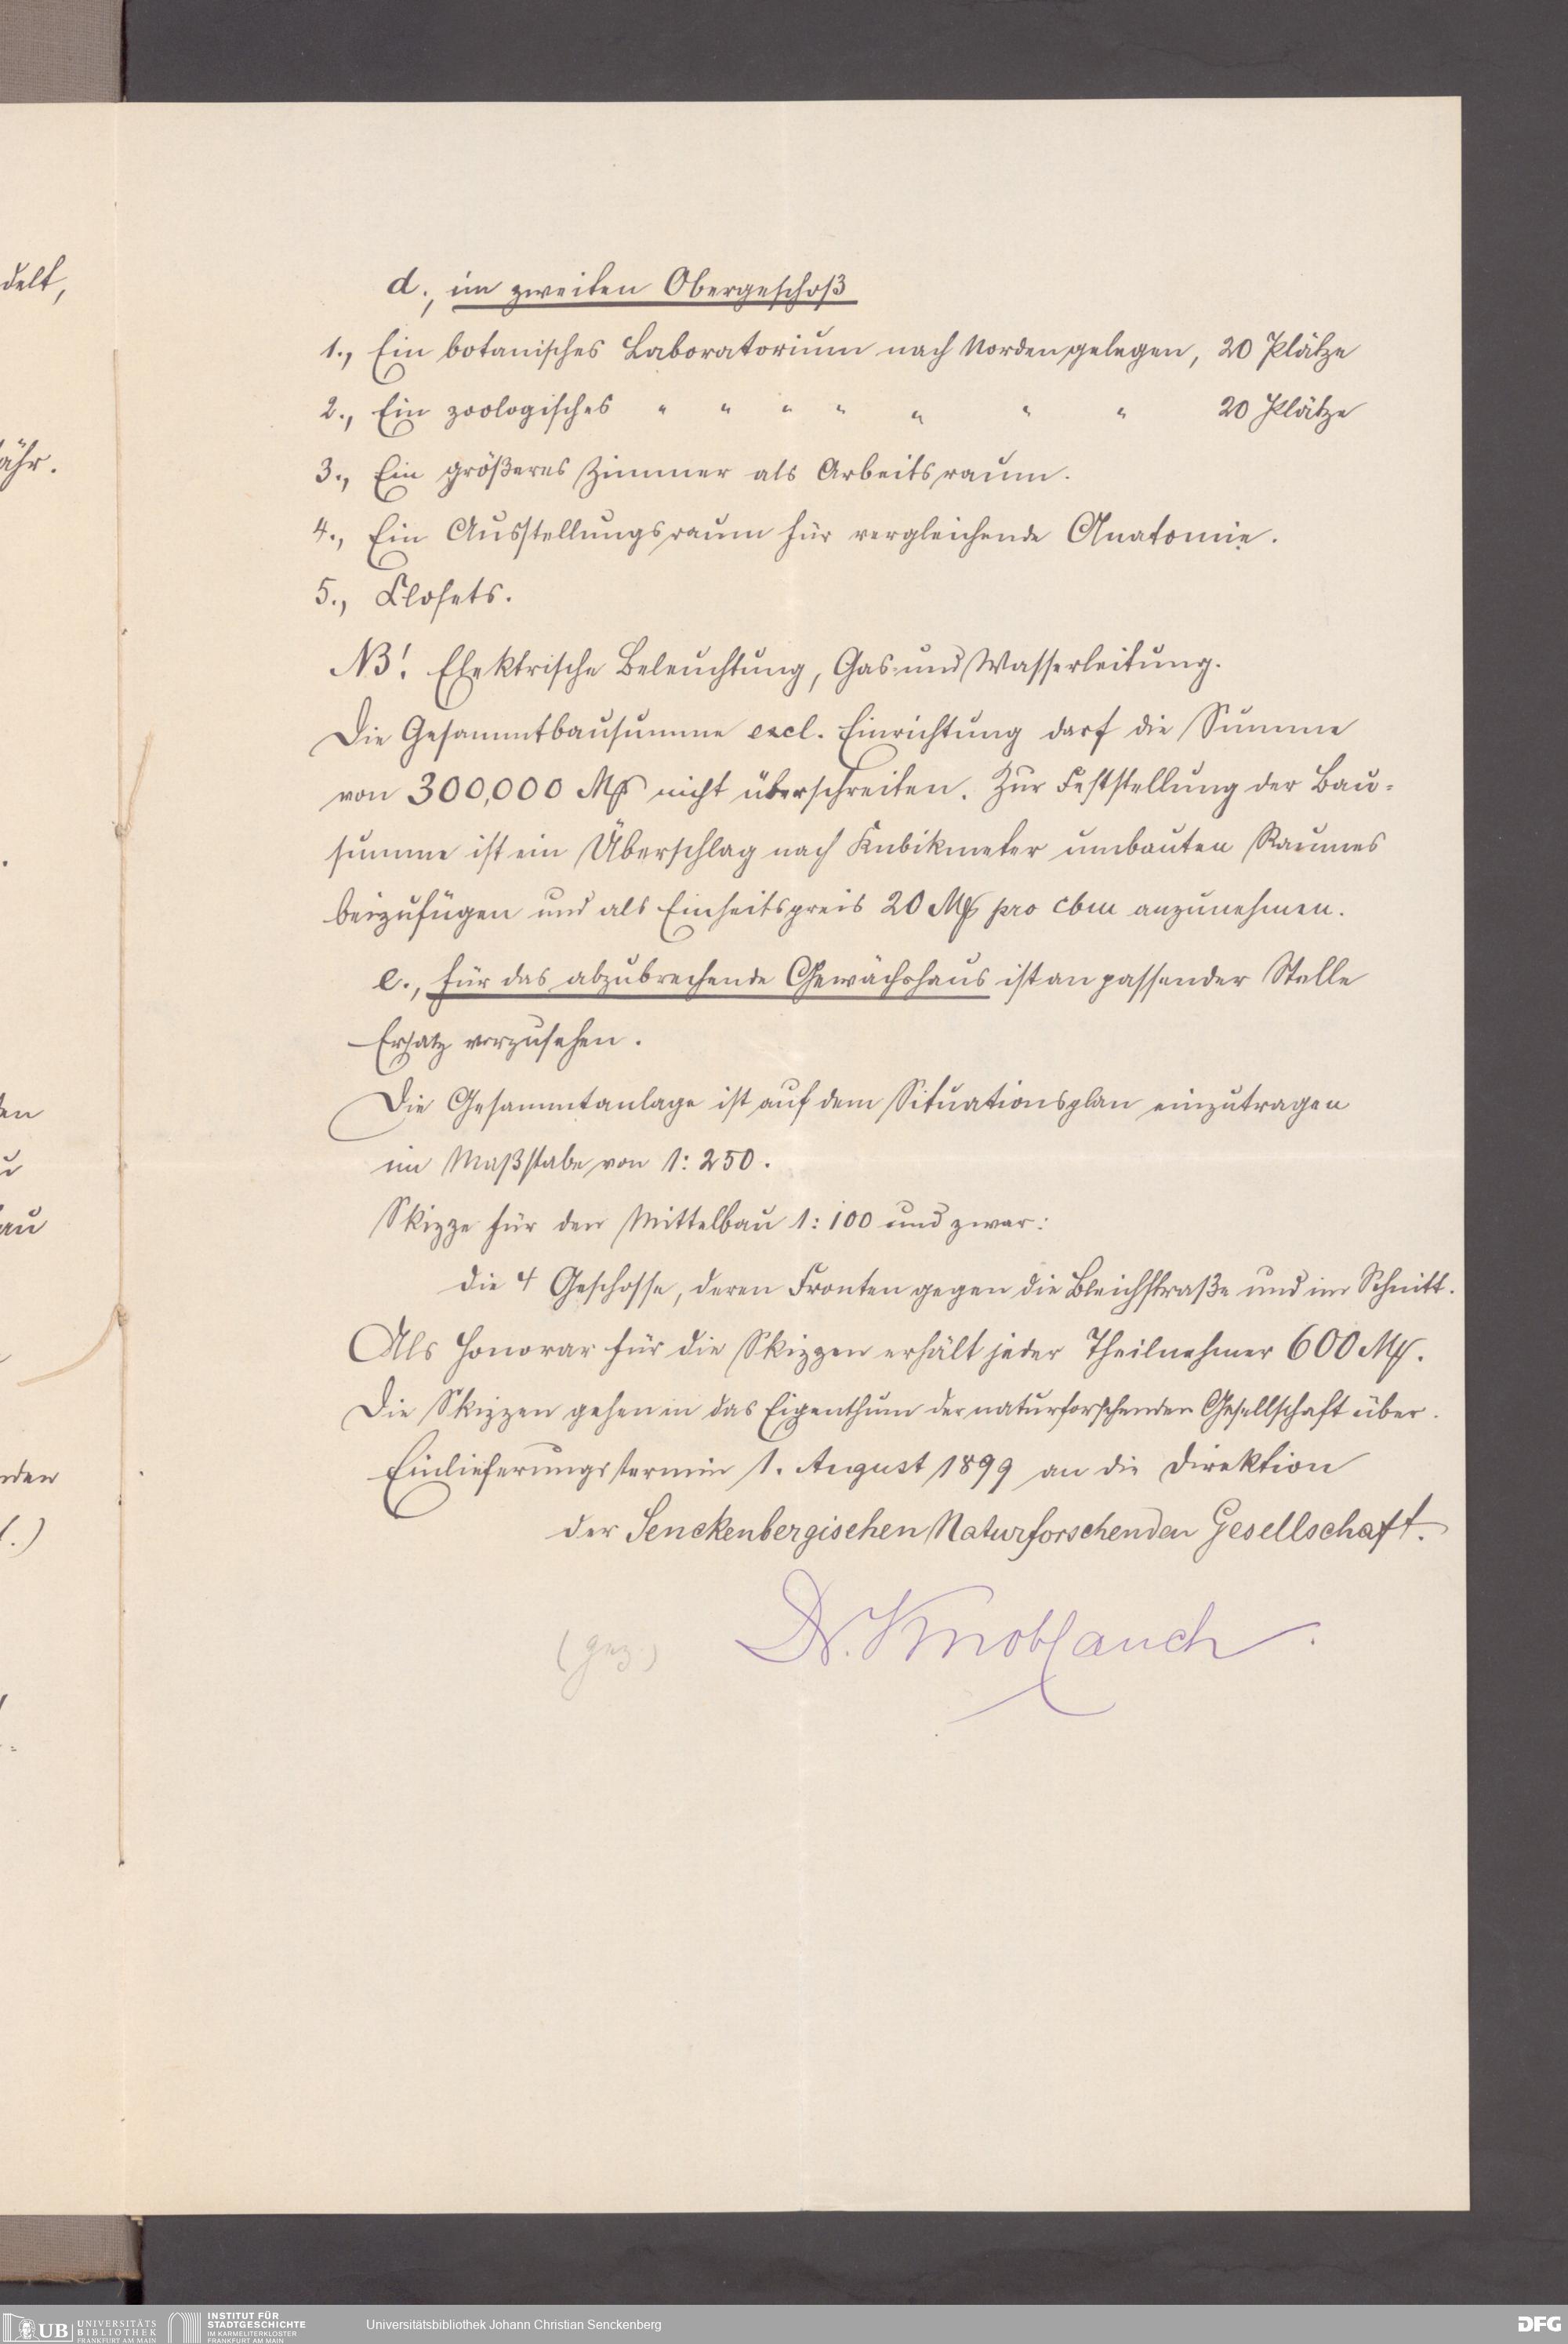 delt,
ähr.
nden
d., im zweiten Obergeschoß
1., Ein botanisches Laboratorium nach Norden gelegen, 20 Plätze
2., Ein zoologisches " " " " " " " 20 Plätze
3., Ein größeres Zimmer als Arbeitsraum.
4., Ein Ausstellungsraum für vergleichende Anatomie.
5., Closets.
NB! Elektrische Beleuchtung, Gas- und Wasserleitung.
Die Gesammtbausumme excl. Einrichtung darf die Summe
von 300,000 Mk nicht überschreiten. Zur Feststellung der Bau-
summe ist ein Überschlag nach Kubikmeter umbauten Raumes
beizufügen und als Einheitspreis 20 Mk pro cbm anzunehmen.
e., für das abzubrechende Gewächshaus ist an passender Stelle
Ersatz vorzusehen.
Die Gesammtanlage ist auf dem Situationsplan einzutragen
im Maßstabe von 1:250.
Skizze für den Mittelbau 1:100 und zwar:
die 4 Geschosse, deren Fronten gegen die Bleichstraße und im Schnitt.
Als Honorar für die Skizzen erhält jeder Theilnehmer 600 Mk.
Die Skizzen gehen in das Eigenthum der naturforschenden Gesellschaft über.
Einlieferungstermin 1. August 1899 an die Direktion
der Senckenbergischen Naturforschenden Gesellschaft.
(gez.) Dr. Knoblauch.
UB UNIVERSITÄTS BIBLIOTHEK FRANKFURT AM MAIN
INSTITUT FÜR STADTGESCHICHTE IM KARMELITERKLOSTER FRANKFURT AM MAIN
Universitätsbibliothek Johann Christian Senckenberg
DFG